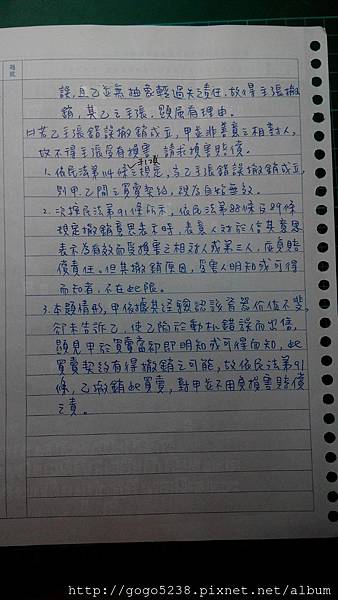 誤，且乙並無抽象輕過失之責任，故得主張撤
銷，其乙之主張，顯屬有理由。
若乙主張錯誤撤銷成立，甲並非善意之相對人，
故不得主張受有損害，請求損害賠償。
1. 依民法第114條之規定，當乙主張錯誤撤銷成立，
則甲乙間之買賣契約，視為自始無效。
2. 次按民法第91條所示，依民法第88條及89條
規定撤銷意思表示時，表意人對於信其意思
表示為有效而受損害之相對人或第三人，應負賠
償責任。但其撤銷原因，受害人明知或可得
而知者，不在此限。
3. 本題情形，甲依據其經驗認該青器價值不斐，
卻未告訴乙，使乙陷於動機錯誤而出售，
顯見甲於買賣當初即明知或可得而知，此
買賣契約有得撤銷之可能，故依民法第91
條，乙撤銷此買賣，對甲並不用負損害賠償
之責。
http://gogo5238.pixnet.net/album